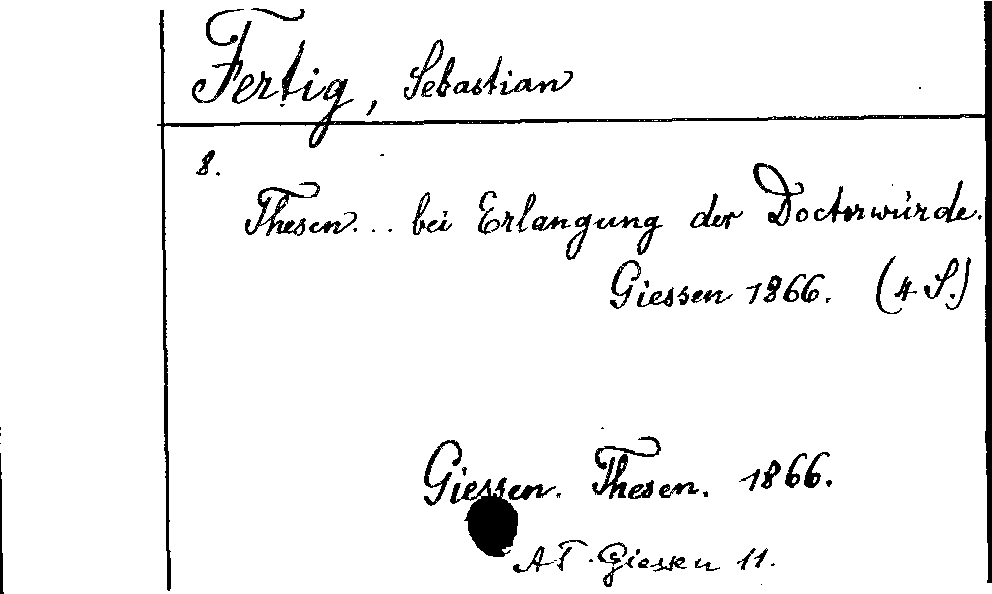 Fertig, Sebastian
8.
Thesen... bei Erlangung der Doctorwürde.
Giessen 1866. (4 S.)
Giessen. Thesen. 1866.
AT. Giessen 11.